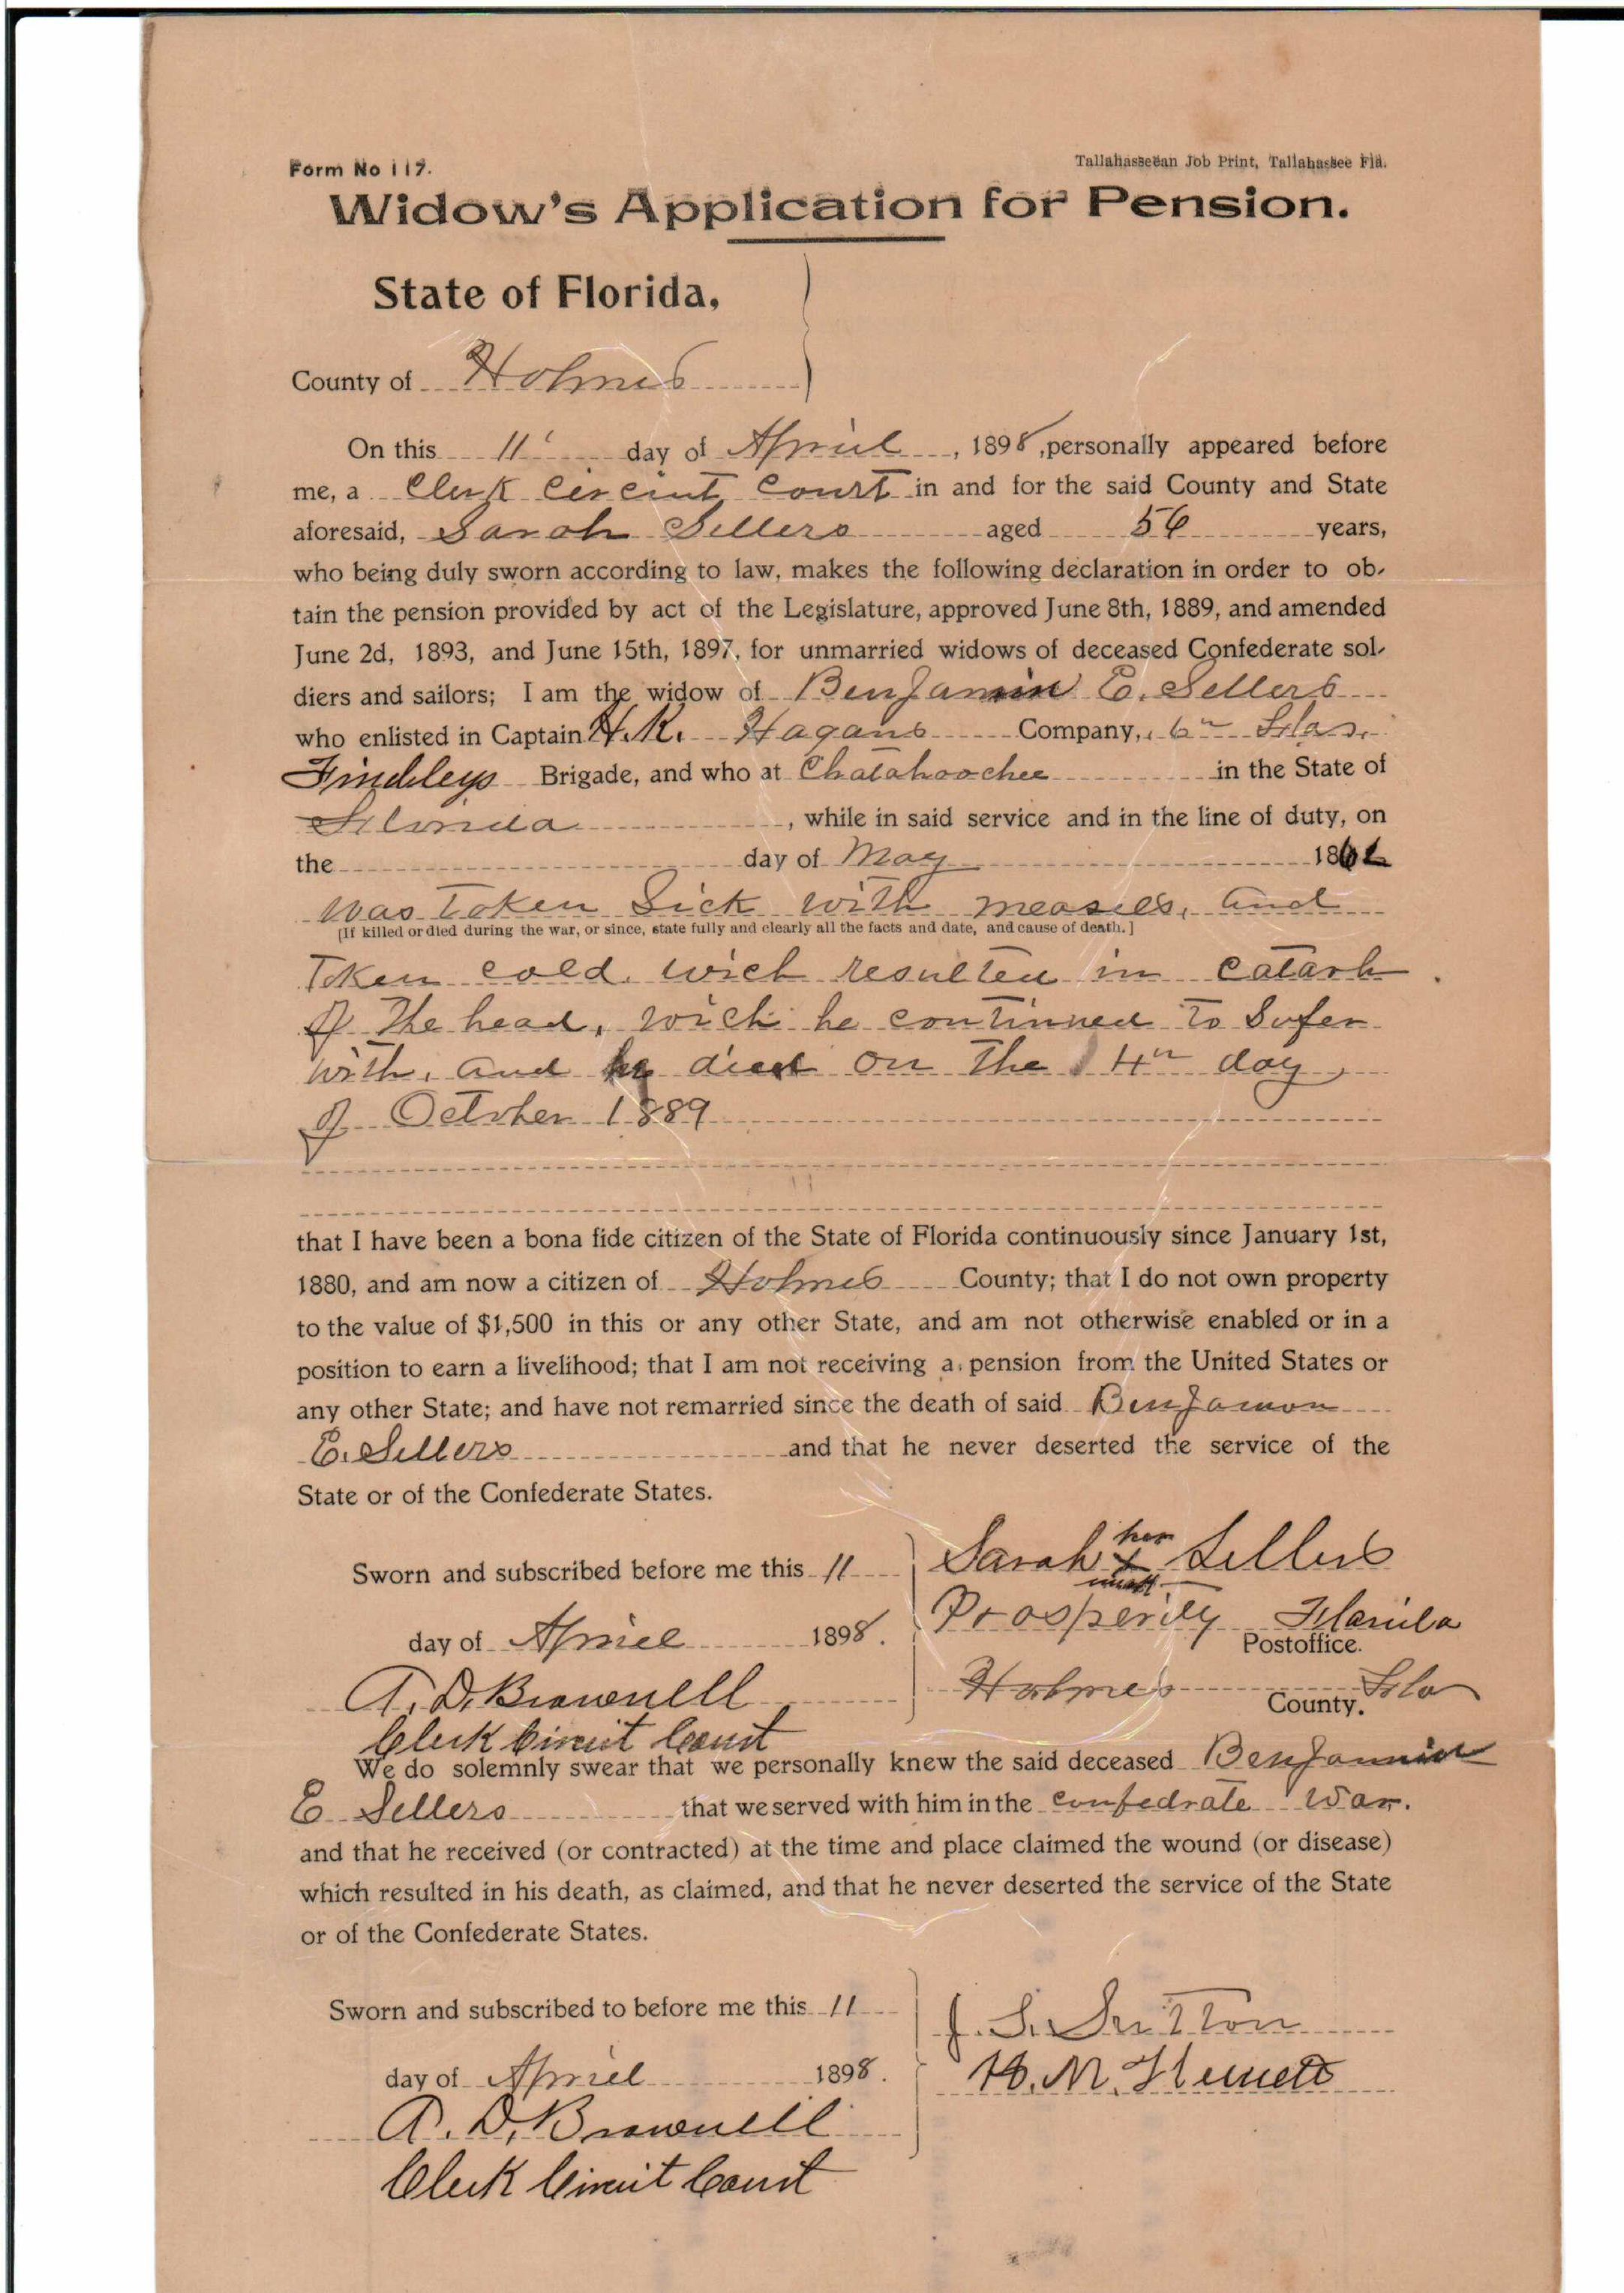 Form No 117.
Tallahasseean Job Print, Tallahassee Fla.
Widow's Application for Pension.
State of Florida,
County of Holmes
On this 11 day of Apriel, 1898, personally appeared before
me, a Clerk Circuit Court in and for the said County and State
aforesaid, Sarah Sellers aged 56 years,
who being duly sworn according to law, makes the following declaration in order to ob-
tain the pension provided by act of the Legislature, approved June 8th, 1889, and amended
June 2d, 1893, and June 15th, 1897, for unmarried widows of deceased Confederate sol-
diers and sailors; I am the widow of Benjamin E. Sellers
who enlisted in Captain H.K. Hagans Company, 6th Fla.
Findleys Brigade, and who at Chatahoochee in the State of
Florida, while in said service and in the line of duty, on
the day of May 1862
was Taken Sick with measles, and
[If killed or died during the war, or since, state fully and clearly all the facts and date, and cause of death.]
Token cold wich resulted in catarh
of The head, wich he continued To Sufer
with, and he died on The 14th day
of October 1889
that I have been a bona fide citizen of the State of Florida continuously since January 1st,
1880, and am now a citizen of Holmes County; that I do not own property
to the value of $1,500 in this or any other State, and am not otherwise enabled or in a
position to earn a livelihood; that I am not receiving a pension from the United States or
any other State; and have not remarried since the death of said Benjamon
E. Sellers and that he never deserted the service of the
State or of the Confederate States.
Sworn and subscribed before me this 11
day of Apriel 1898.
A. D. Brownell
Clerk Circuit Court
Sarah her x mark Sellers
Prosperity Florida
Postoffice.
Holmes County. Fla
We do solemnly swear that we personally knew the said deceased Benjamin
E Sellers that we served with him in the confedrate War.
and that he received (or contracted) at the time and place claimed the wound (or disease)
which resulted in his death, as claimed, and that he never deserted the service of the State
or of the Confederate States.
Sworn and subscribed to before me this 11
day of Apriel 1898.
A. D. Brownell
Clerk Circuit Court
J. S. Sutton
M.